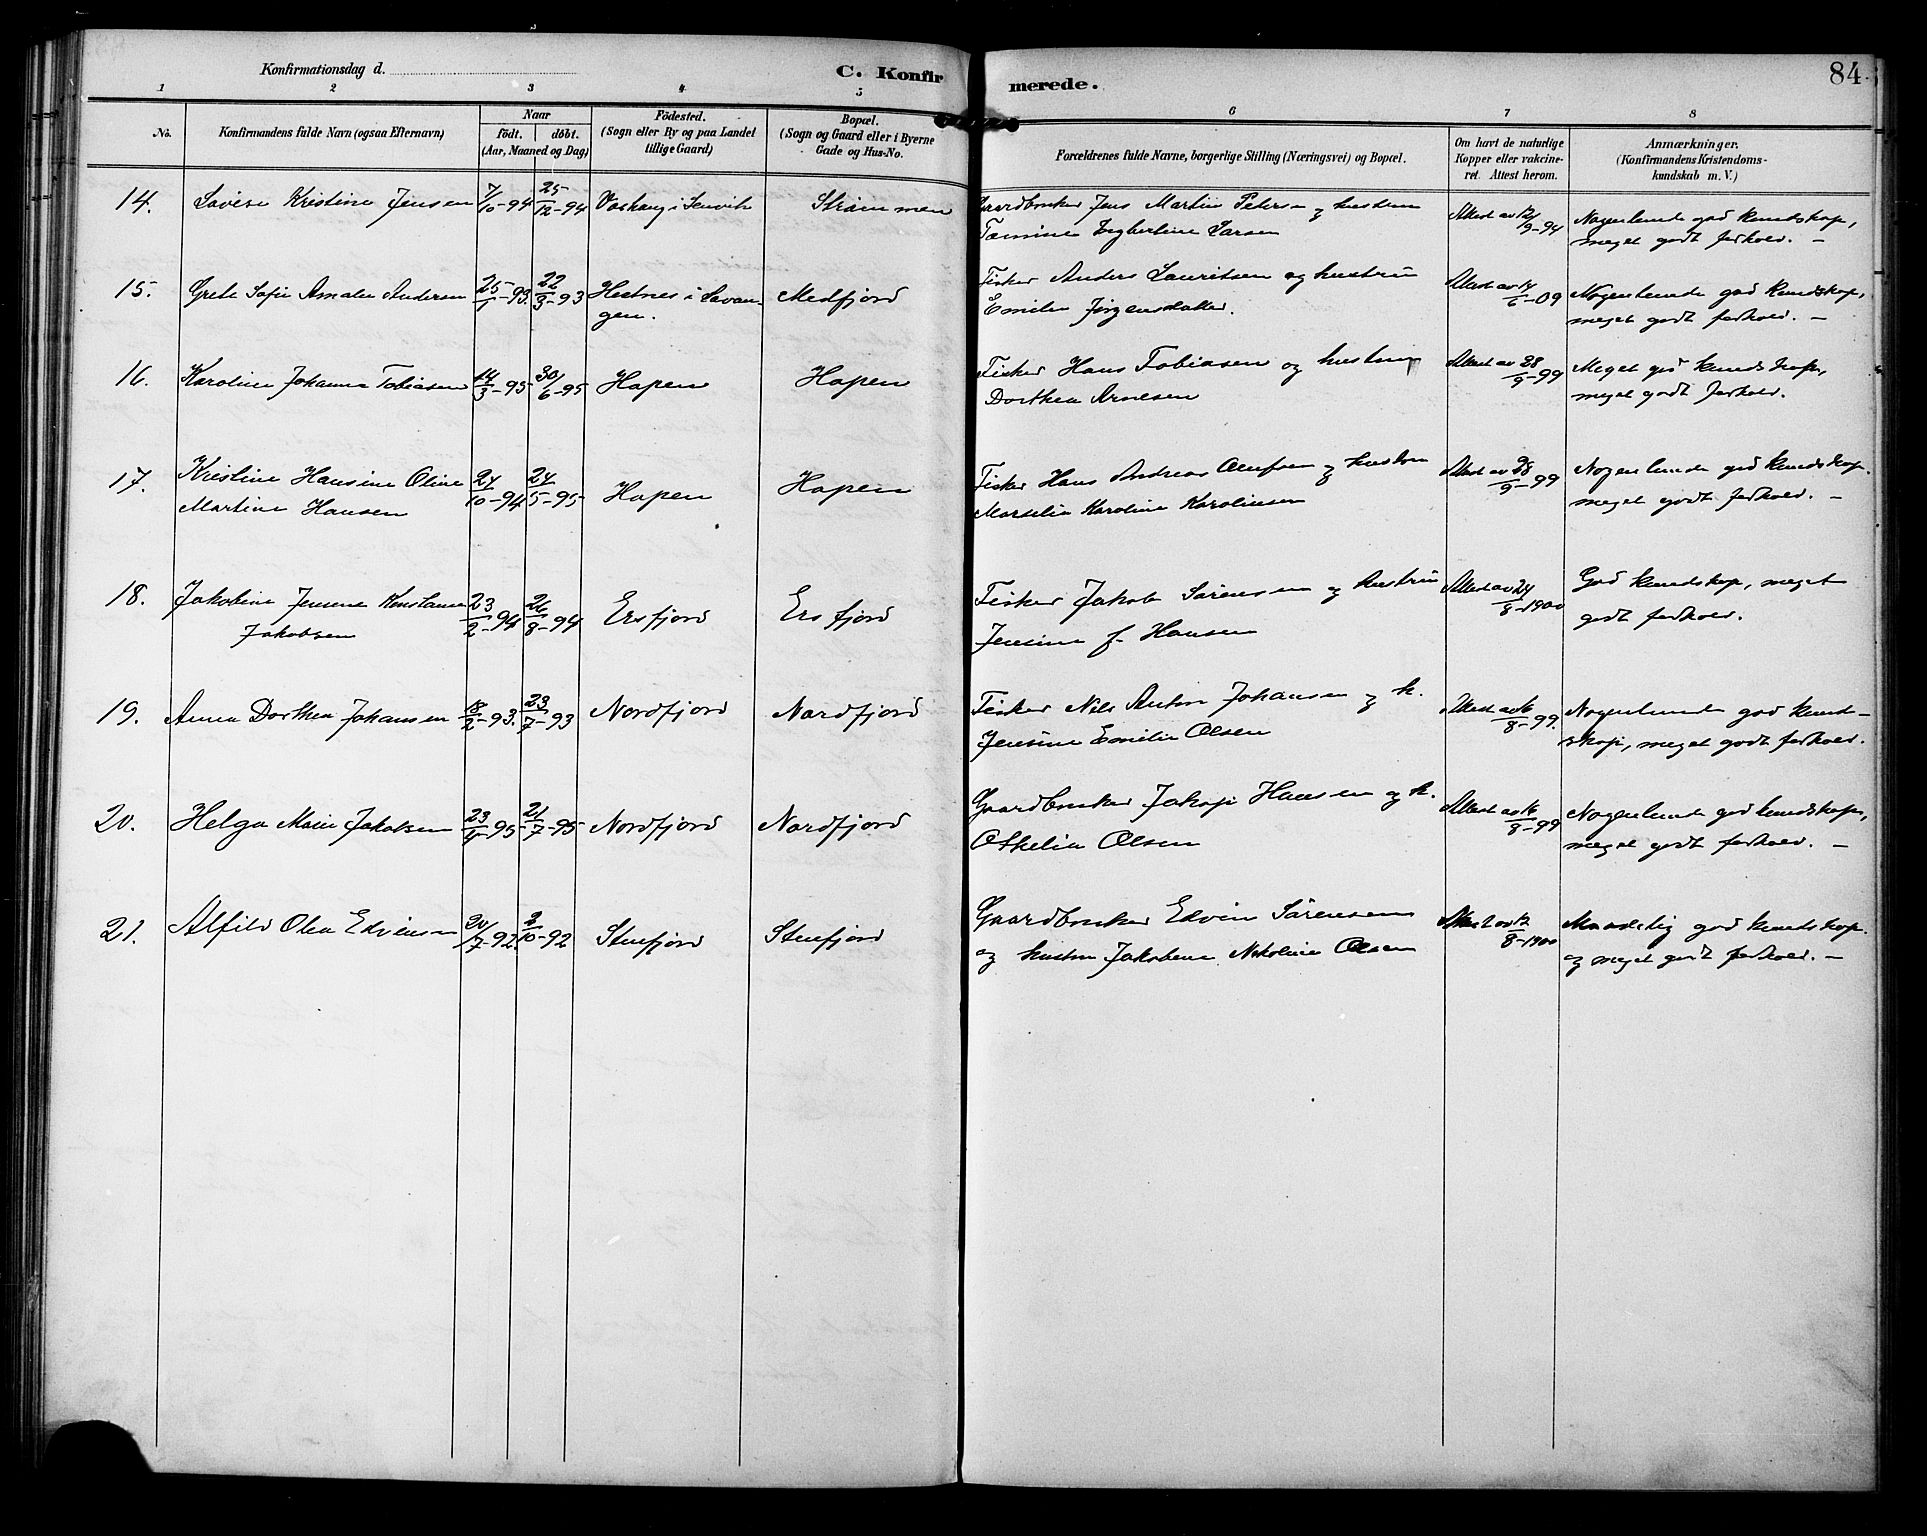 84.
Konfirmationsdag d.
C. Konfirmerede.
1 2 3 4 5 6 7 8
No.
Konfirmandens fulde Navn (ogsaa Efternavn)
Naar
födt. döbt.
(Aar, Maaned og Dag)
Födested.
(Sogn eller By og paa Landet
tillige Gaard)
Bopæl.
(Sogn og Gaard eller i Byerne
Gade og Hus-No.
Forældrenes fulde Navne, borgerlige Stilling (Næringsvei) og Bopæl.
Om havt de naturlige
Kopper eller vakcine-
ret. Attest herom.
Anmærkninger.
(Konfirmandens Kristendoms-
kundskab m. V.)
14. Lovise Kristine Jensen 7/10-94 25/12-94 i Lenvik Strømmen Gaardbruker Jens Martin Peters og hustru Attest av 12/9-94 Nogenlunde god kundskap,
Ingberline Larsen meget godt forhold. –
15. Grete Sofie Amalie Andersen 25/1-93. 22/3-93 Hestnes i Lavan- Medfjord Fisker Anders Lauritsen og hustru Attest av 14/6-09 Nogenlunde god kundskap,
gen. Emilie Jörgensdatter. meget godt forhold. –
16. Karoline Johanna Tobiasen 14/3-95 30/6-95 Hopen Hopen Fisker Hans Tobiasen og hustru Attest av 28/9-99 Meget god kundskap,
Dorthea Arnesen meget godt forhold.
17. Kristine Hansine Oline 24/10-94 24/5-95 Hopen Hopen Fisker Hans Andreas Olufsen og hustru Attest av 28/9-99 Nogenlunde god kundskap.
Martine Hansen Marselie Karoline Karolinsen meget godt forhold. –
18. Jakobine Jensine Konstanse 23/2-94 26/8-94 Ersfjord Ersfjord Fisker Jakob Sörensen og hustru Attest av 24/8-1900 God kundskap, meget
Jakobsen Jensine f. Hansen godt forhold.
19. Anna Dorthea Johansen 18/2-93. 23/7-93 Nordfjord Nordfjord Fisker Nils Anton Johansen og h. Attest av 16/8-99. Nogenlunde god kund-
Jensine Emilie Olsen skap, meget godt forhold.
20. Helga Marie Jakobsen 23/4-95 21/7-95 Nordfjord Nordfjord Gaardbruker Jakop Hansen og h. Attest av 16/8-99 Nogenlunde god kundskap,
Othelia Olsen meget godt forhold. –
21. Alfild Olea Edvinsen 20/7-92. 2/10-92 Stenfjord Stenfjord Gaardbruker Edvin Sörensen Attest av 12/8-1900 Maadelig god kundskap.
og hustru Jakobine Nikoline Olsen og meget godt forhold. –